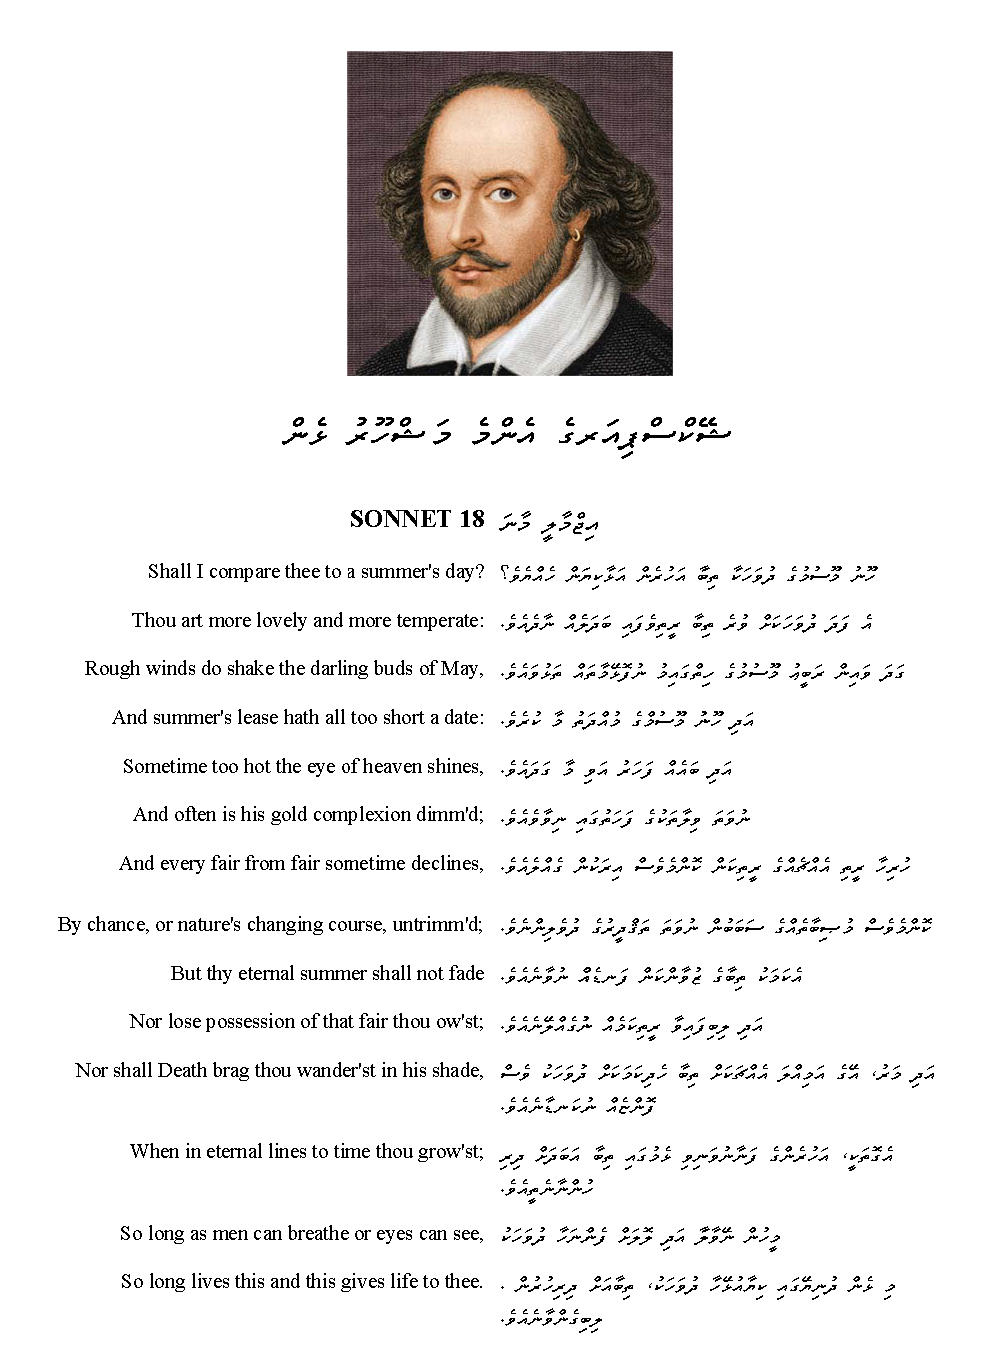 ޝޭކްސްޕިއަރގެ އެންމެ މަޝްހޫރު ޅެން
SONNET 18 އިޖްމާލީ މާނަ
Shall I compare thee to a summer's day? ހޫނު މޫސުމުގެ ދުވަހަކާ ތިބާ އަހުރެން އަޅާކިޔަން ހެއްޔެވެ؟
Thou art more lovely and more temperate: އެ ފަދަ ދުވަހަކަށް ވުރެ ތިބާ ރީތިވެފައި ބަދަލެއް ނާދެއެވެ.
Rough winds do shake the darling buds of May, ގަދަ ވައިން ރަބީޢު މޫސުމުގެ ހިތްގައިމު ނުފޮޅޭމާތައް ތަޅުވައެވެ.
And summer's lease hath all too short a date: އަދި ހޫނު މޫސުމްގެ މުއްދަތު މާ ކުރެވެ.
Sometime too hot the eye of heaven shines, އަދި ބައެއް ފަހަރު އަވި މާ ގަދައެވެ.
And often is his gold complexion dimm'd; ނުވަތަ ވިލާތަކުގެ ފަހަތުގައި ނިވާވެއެވެ.
And every fair from fair sometime declines, ހުރިހާ ރީތި އެއްޗެއްގެ ރީތިކަން ކޮންމެވެސް އިރަކުން ގެއްލެއެވެ.
By chance, or nature's changing course, untrimm'd; ކޮންމެވެސް މުޞީބާތެއްގެ ސަބަބުން ނުވަތަ ތަޤްދީރުގެ ދުވެލިންނެވެ.
But thy eternal summer shall not fade އެކަމަކު ތިބާގެ ޒުވާންކަން ފަނޑެއް ނުވާނެއެވެ.
Nor lose possession of that fair thou ow'st; އަދި ލިބިފައިވާ ރީތިކަމެއް ނުގެއްލޭނެއެވެ.
Nor shall Death brag thou wander'st in his shade, އަދި މަރު، އޭގެ އަމިއްލަ އެއްޗަކަށް ތިބާ ހެދިކަމަކަށް ދުވަހަކު ވެސް
ފޮންޏެއް ނުކަނޑާނެއެވެ.
When in eternal lines to time thou grow'st; އެގޮތަކީ، އަހުރެންގެ ފަންނުވަނިވި ޅެމުގައި ތިބާ އަބަދަށް ދިރި
ހުންނާނެތީއެވެ.
So long as men can breathe or eyes can see, މީހުން ނޭވާލާ އަދި ލޮލަށް ފެންނަހާ ދުވަހަކު
So long lives this and this gives life to thee. މި ޅެން ދުނިޔޭގައި ކިޔާއުޅޭހާ ދުވަހަކު، ތިބާއަށް ދިރިހުރުން .
ލިބިގެންވާނެއެވެ.